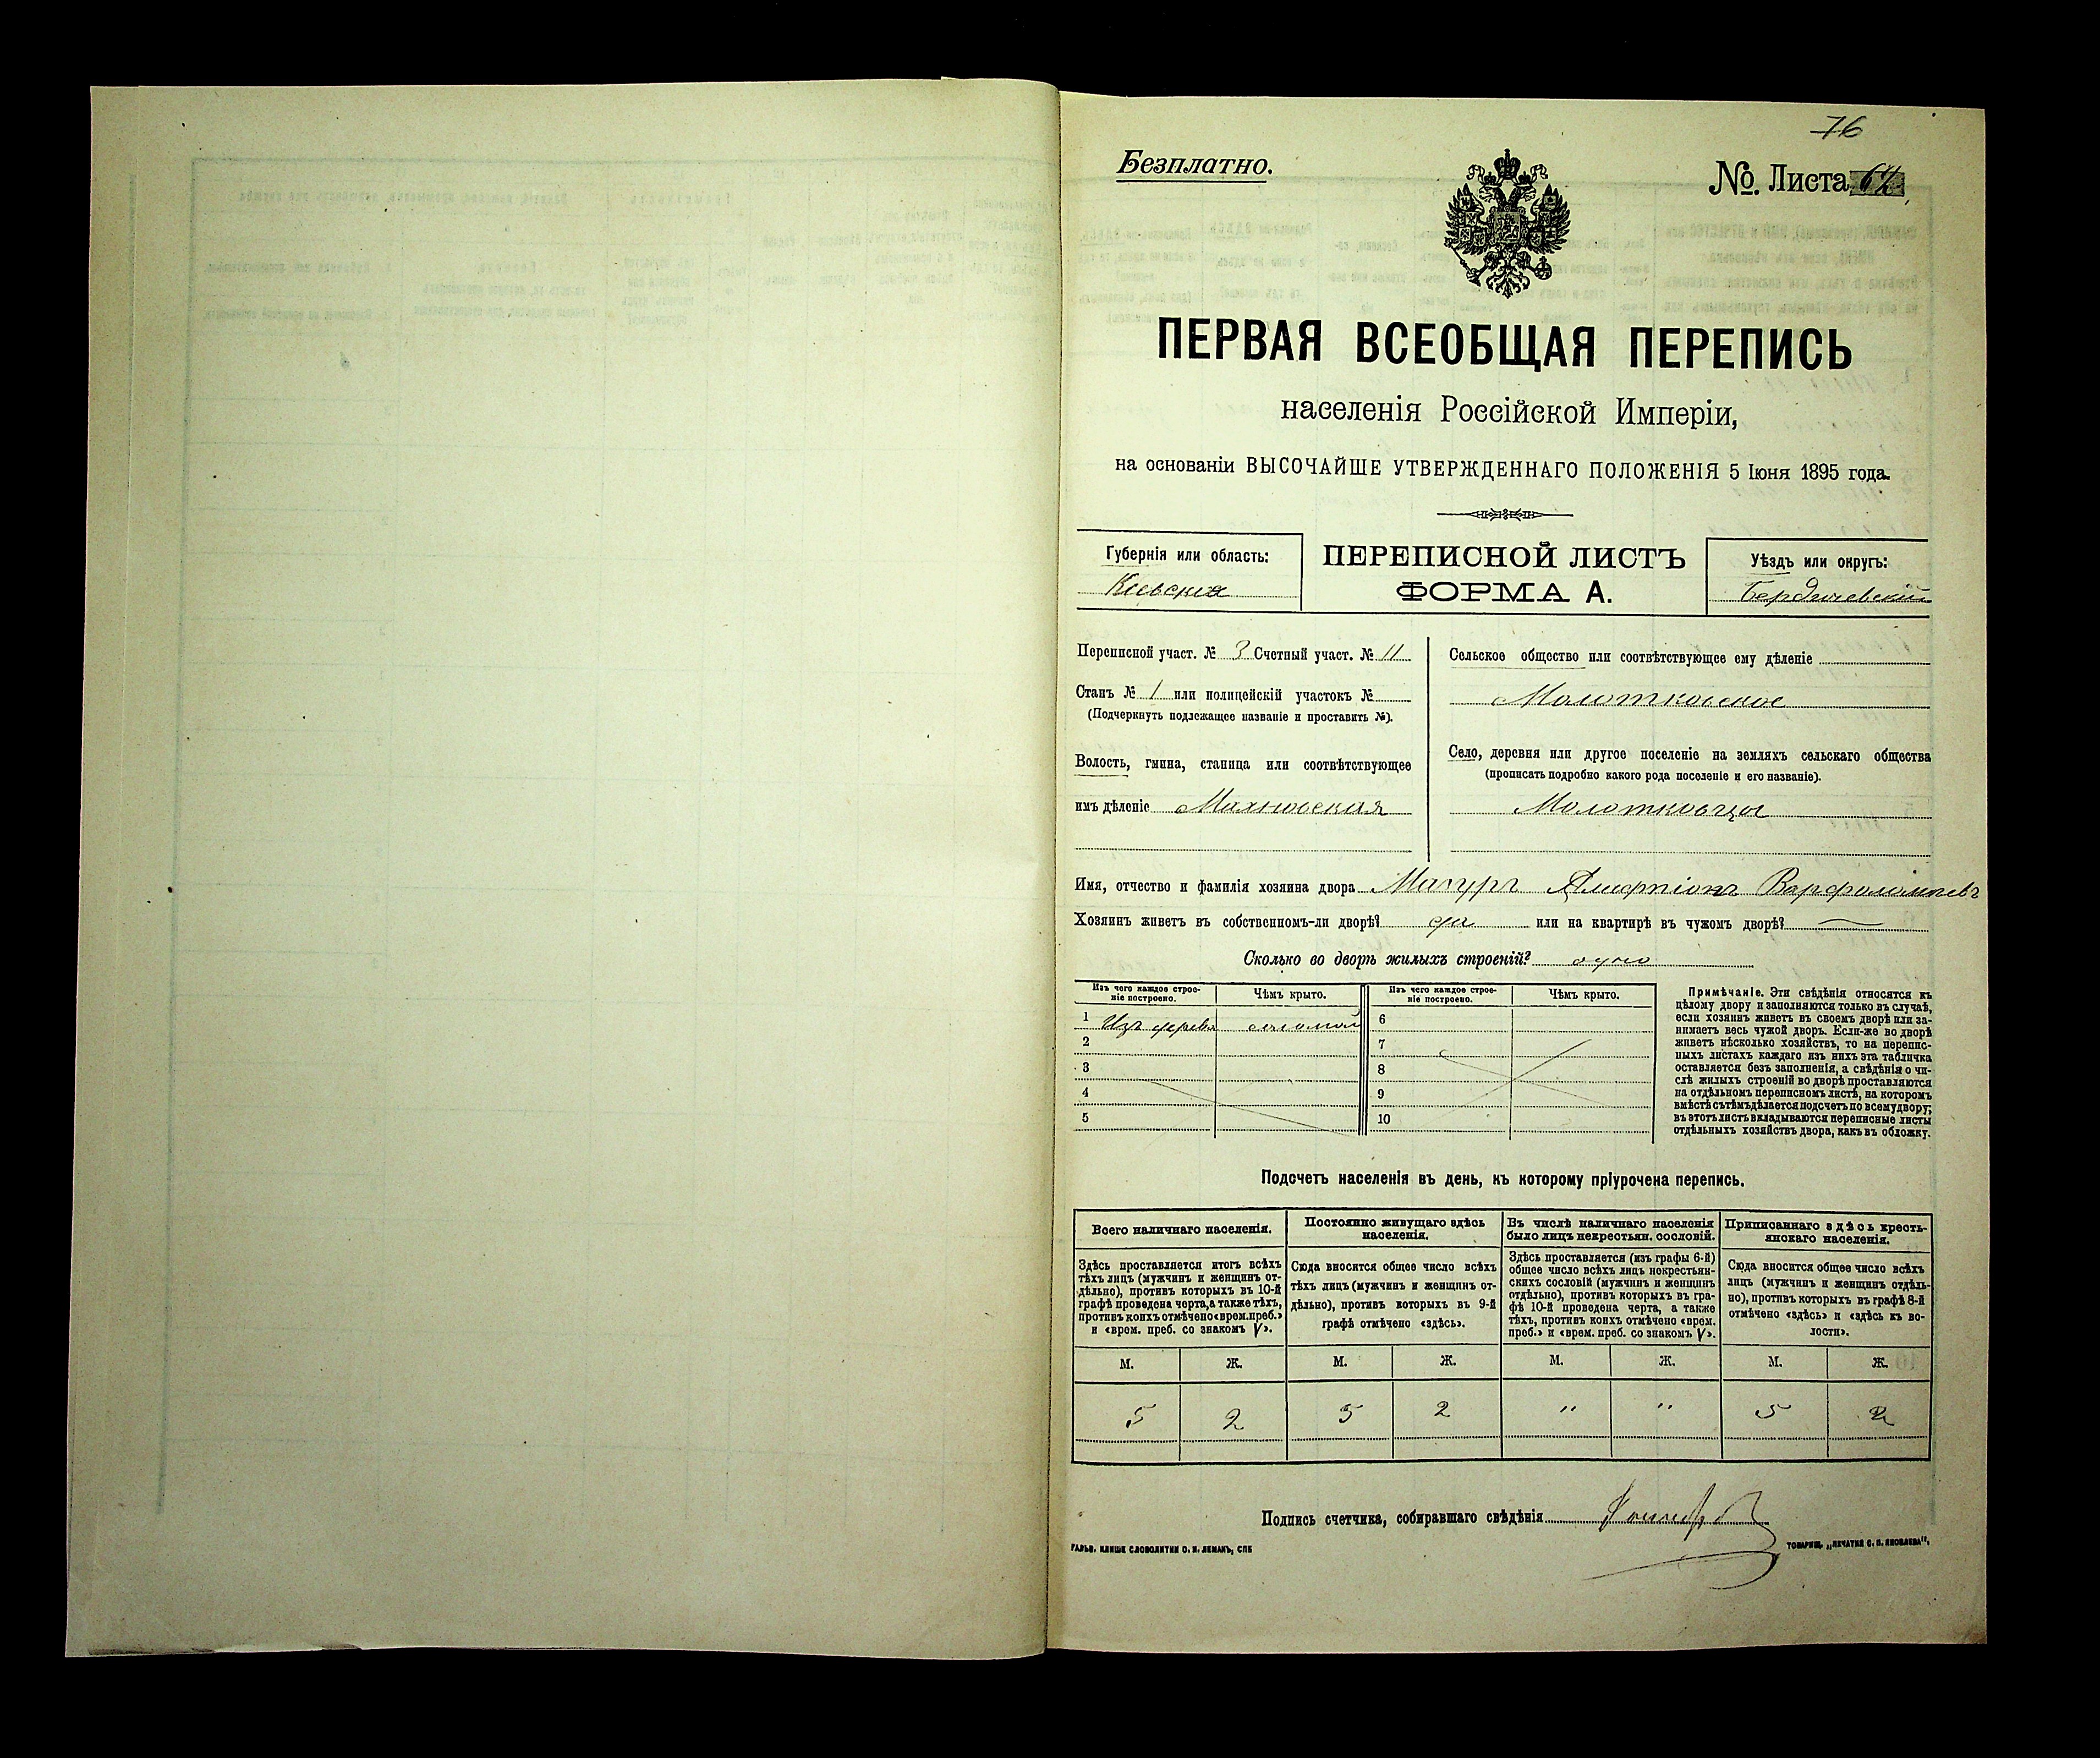 76
Безплатно.
№. Листа 62
ПЕРВАЯ ВСЕОБЩАЯ ПЕРЕПИСЬ
населенія Россійской Имперіи,
на основаніи ВЫСОЧАЙШЕ УТВЕРЖДЕННАГО ПОЛОЖЕНІЯ 5 Іюня 1895 года.
Губернія или область:
Кіевская
ПЕРЕПИСНОЙ ЛИСТЪ
ФОРМА А.
Уѣздъ или округъ:
Бердичевскій
Переписной участ. № 3 Счетный участ. № 11
Станъ № 1 или полицейскій участокъ №
(Подчеркнуть подлежащее названіе и проставить №).
Волость, гмина, станица или соотвѣтствующее
имъ дѣленіе Махновская
Сельское общество или соотвѣтствующее ему дѣленіе
Молотковское
Село, деревня или другое поселеніе на земляхъ сельскаго общества
(прописать подробно какого рода поселеніе и его названіе).
Молотковцы
Имя, отчество и фамилія хозяина двора Мазуръ Варфоломѣевъ
Хозяинъ живетъ въ собственномъ-ли дворѣ? да или на квартирѣ въ чужомъ дворѣ? —
Сколько во дворѣ жилыхъ строеній? одно
Изъ чего каждое строе-
ніе построено.
Чѣмъ крыто.
Изъ чего каждое строе-
ніе построено.
Чѣмъ крыто.
1 Изъ дерева соломой
2
3
4
5
6
7
8
9
10
Примѣчаніе. Эти свѣдѣнія относятся къ
цѣлому двору и заполняются только въ случаѣ,
если хозяинъ живетъ въ своемъ дворѣ или за-
нимаетъ весь чужой дворъ. Если-же во дворѣ
живетъ нѣсколько хозяйствъ, то на перепис-
ныхъ листахъ каждаго изъ нихъ эта табличка
оставляется безъ заполненія, а свѣдѣнія о чи-
слѣ жилыхъ строеній во дворѣ проставляются
на отдѣльномъ переписномъ листѣ, на которомъ
вмѣстѣ съ тѣмъ дѣлается подсчетъ по всему двору;
въ этотъ листъ вкладываются переписные листы
отдѣльныхъ хозяйствъ двора, какъ въ обложку.
Подсчетъ населенія въ день, къ которому пріурочена перепись.
Всего наличнаго населенія.
Здѣсь проставляется итогъ всѣхъ
тѣхъ лицъ (мужчинъ и женщинъ от-
дѣльно), противъ которыхъ въ 10-й
графѣ проведена черта, а также тѣхъ,
противъ коихъ отмѣчено «врем. преб.»
и «врем. преб. со знакомъ V».
Постоянно живущаго здѣсь
населенія.
Сюда вносится общее число всѣхъ
тѣхъ лицъ (мужчинъ и женщинъ от-
дѣльно), противъ которыхъ въ 9-й
графѣ отмѣчено «здѣсь».
Въ числѣ наличнаго населенія
было лицъ некрестьян. сословій.
Здѣсь проставляется (изъ графы 6-й)
общее число всѣхъ лицъ некрестьян-
скихъ сословій (мужчинъ и женщинъ
отдѣльно), противъ которыхъ въ гра-
фѣ 10-й проведена черта, а также
тѣхъ, противъ коихъ отмѣчено «врем.
преб.» и «врем. преб. со знакомъ V».
Приписаннаго здѣсь кресть-
янскаго населенія.
Сюда вносится общее число всѣхъ
лицъ (мужчинъ и женщинъ отдѣль-
но), противъ которыхъ въ графѣ 8-й
отмѣчено «здѣсь» и «здѣсь къ во-
лости».
М. Ж. М. Ж. М. Ж. М. Ж.
5 2 5 2 " " 5 2
Подпись счетчика, собиравшаго свѣдѣнія
ГАЛЬВ. КЛИШЕ СЛОВОЛИТНИ О. И. ЛЕМАНЪ, СПБ
ТОВАРИЩ. „ПЕЧАТНЯ С. П. ЯКОВЛЕВА“.